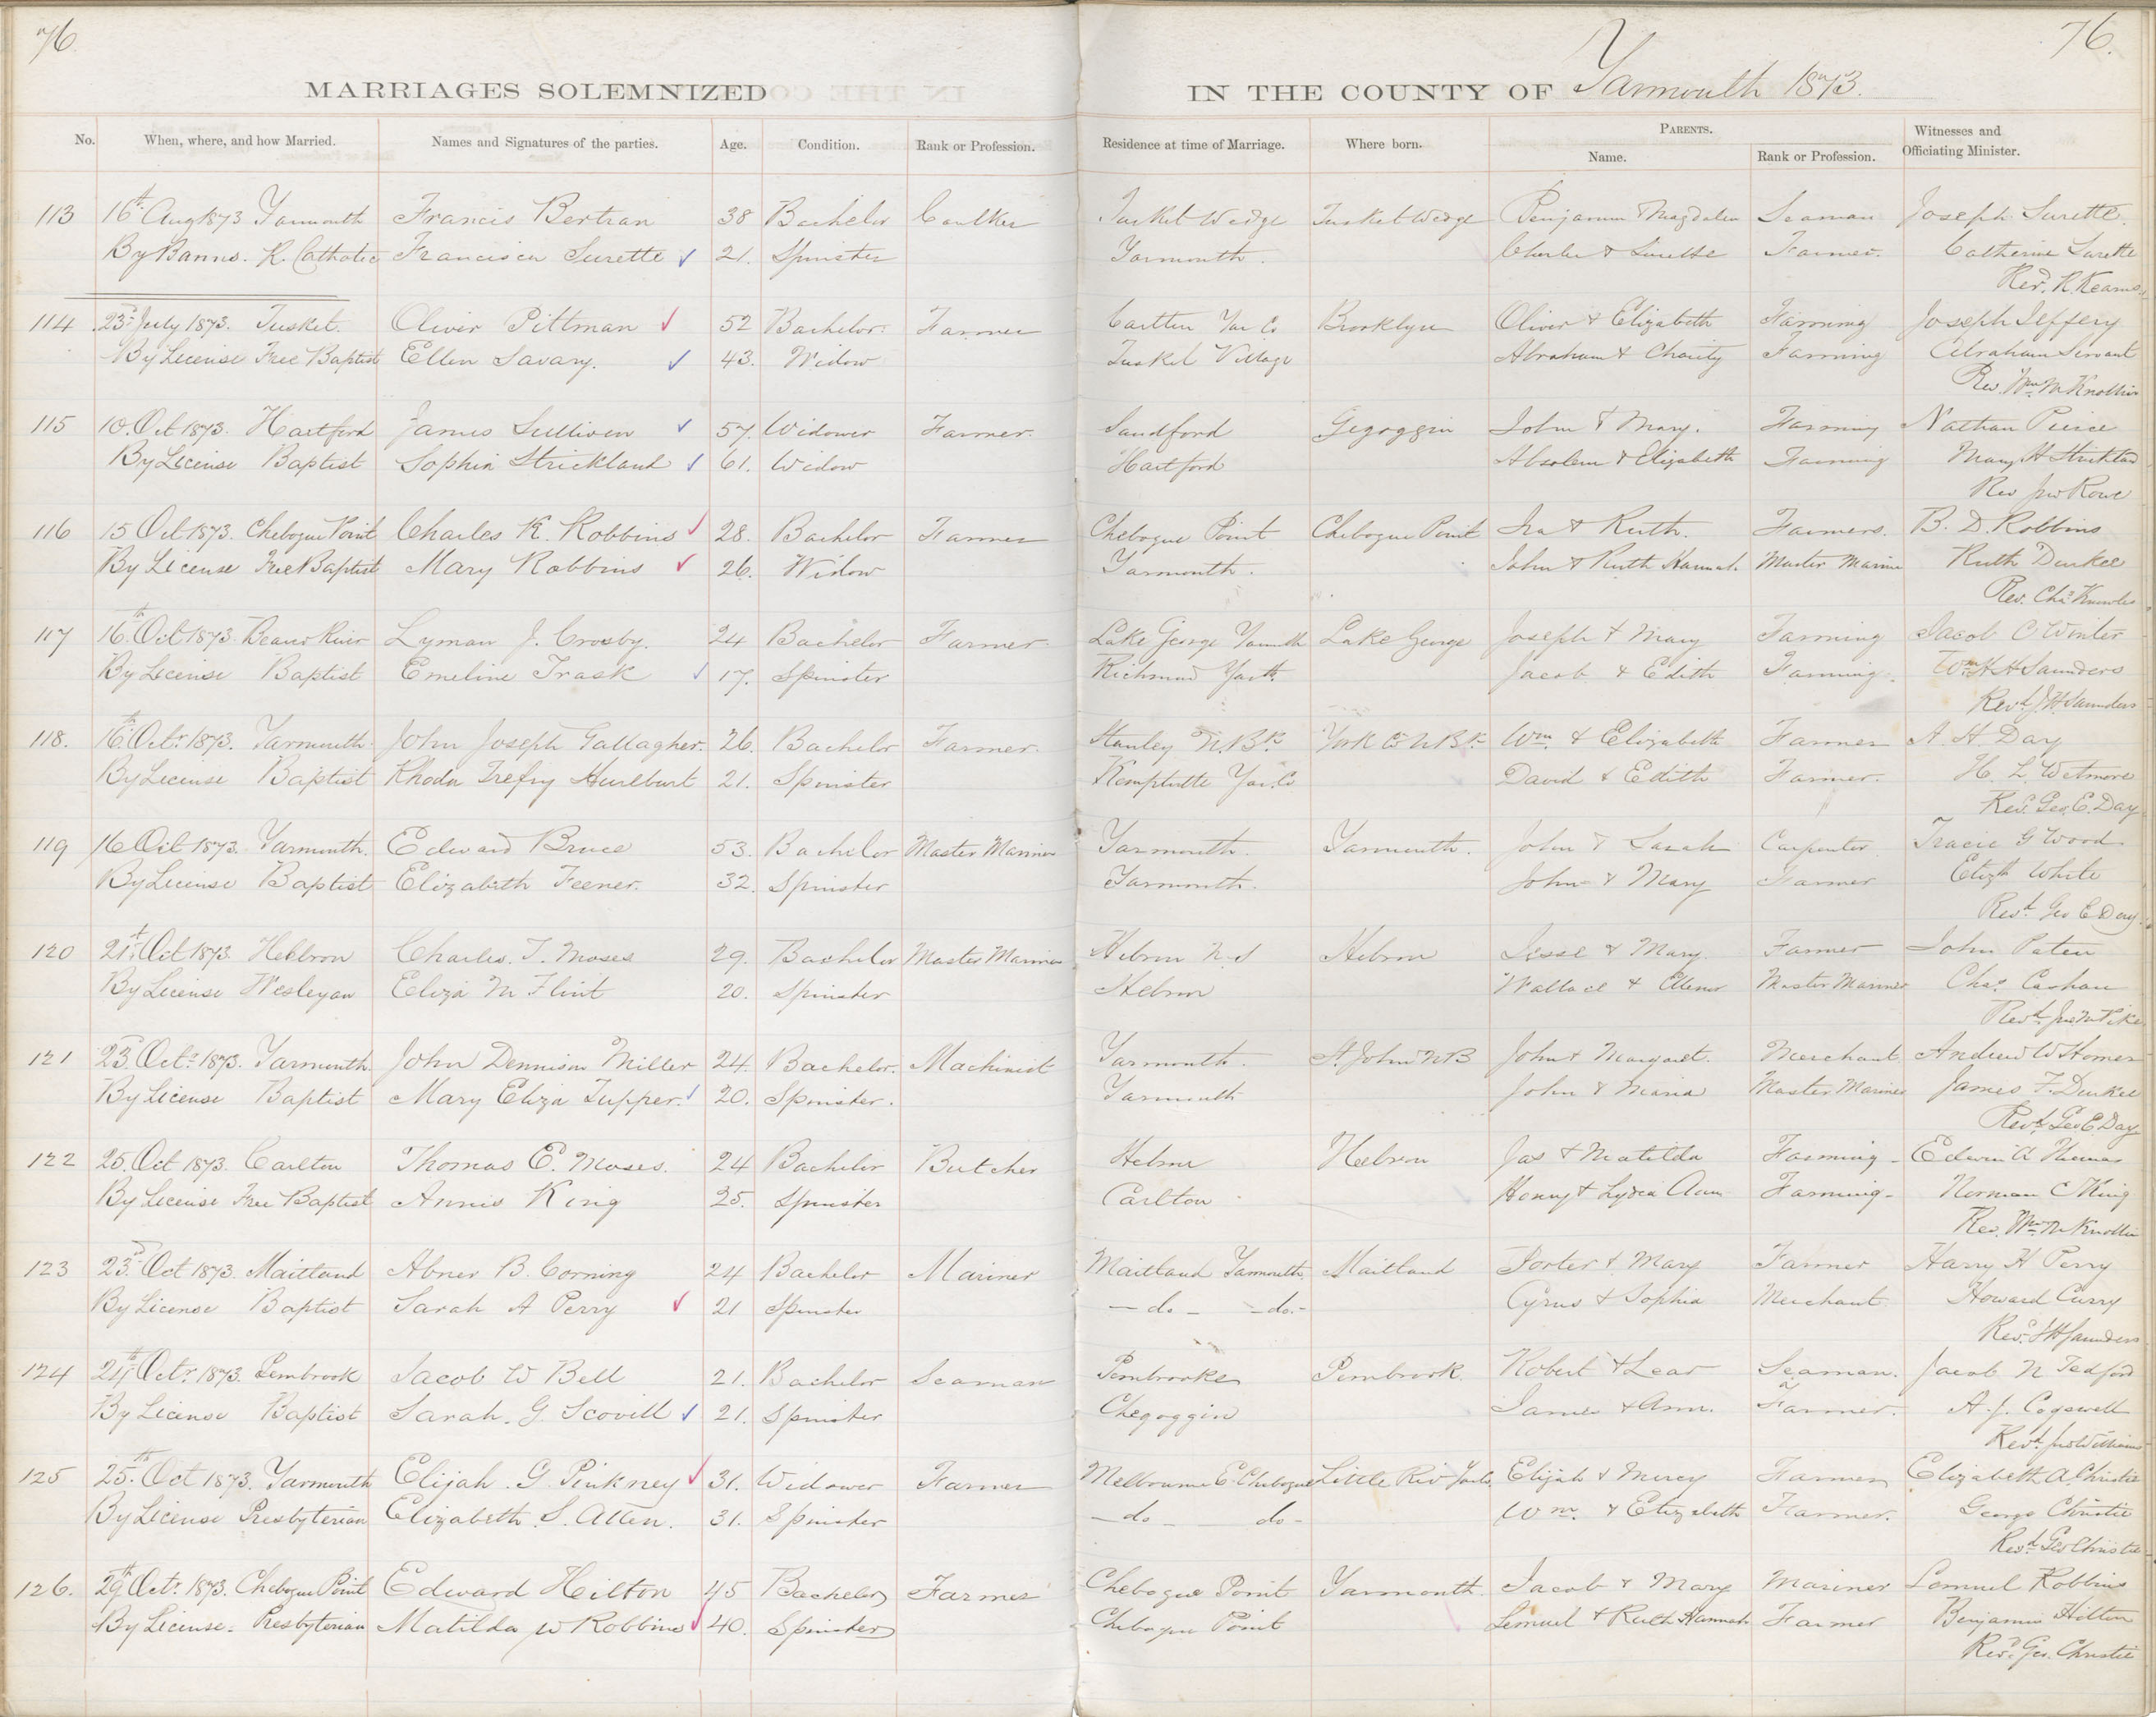 76.
76.
MARRIAGES SOLEMNIZED IN THE COUNTY OF Yarmouth 1873.
No. When, where, and how Married. Names and Signatures of the parties. Age. Condition. Rank or Profession. Residence at time of Marriage. Where born. PARENTS. Name. Rank or Profession. Witnesses and Officiating Minister.
113 16th Aug 1873 Yarmouth Francis Bertran 38 Bachelor Caulker Tusket Wedge Tusket Wedge Benjamin & Magdalen Seaman Joseph Surette
By Banns. R. Catholic Surette 21. Spinster Yarmouth. Charles & Farmer. Catherine Surette
Revd. R. Kearns
114 23d July 1873. Tusket. Oliver Pittman 52 Bachelor. Farmer Carlton Yar Co Brooklyn Oliver & Elizabeth Farming Joseph Jeffery
By License Free Baptist Ellen Savary. 43. Widow Tusket Village Abraham & Charity Farming Abraham Servant
Rev Wm M Knollin
115 10. Oct 1873. Hartford James Sullivan 57. Widower Farmer. Sandford Gegoggin John & Mary. Farming Nathan Pierce
By License Baptist Sophia Strickland 61. Widow Hartford Absolem & Elizabeth Farming Mary H
Rev Jno Rowe
116 15 Oct 1873. Chebogue Point Charles K. Robbins 28. Bachelor Farmer Chebogue Point Chebogue Point Ira & Ruth. Farmers. B. D. Robbins
By License Free Baptist Mary Robbins 26. Widow Yarmouth. John & Ruth Hannah. Master Marine Ruth Durkee
Rev. Chas Knowles
117 16th Oct 1873. Beaver River Lyman J. Crosby. 24 Bachelor Farmer Lake George Yarmouth Lake George Joseph & Mary Farming Jacob C Winter
By License Baptist Emeline Trask 17. Spinster Richmond Yarth. Jacob & Edith Farming. Wm H H Saunders
Revd J H Saunders
118. 16th Octr 1873. Yarmouth John Joseph Gallagher. 26. Bachelor Farmer. Stanley N.Bk York Co N Bk Wm. & Elizabeth Farmer A. H. Day
By License Baptist Rhoda Trefry Hurlburt 21. Spinster Kemptville Yar. Co David & Edith Farmer. H. L. Wetmore
Rev. Geo. E. Day
119 16 Oct 1873. Yarmouth. Edward Bruce 53. Bachelor Master Mariner Yarmouth. Yarmouth. John & Sarah Carpenter Tracie G Wood
By License Baptist Elizabeth Feener. 32. Spinster Yarmouth. John & Mary Farmer Elizth White
Revd. Geo E Day
120 21st Oct 1873. Hebbron Charles. T. Moses 29. Bachelor Master Mariner Hebron N.S Hebron Jesse & Mary. Farmer John Paten
By License Wesleyan Eliza M Flint 20. Spinster Hebron Wallace & Elenor Master Mariner Chas.
Revd. Jno M Pike
121 23d Octr 1873. Yarmouth. John Dennison Miller 24. Bachelor. Machinist Yarmouth. St. John N B John & Margaret. Merchant Andrew W Homer
By License Baptist Mary Eliza Tupper. 20. Spinster. Yarmouth John & Maria Master Mariner James F. Durkee
Revd. Geo E. Day
122 25. Oct 1873. Carlton Thomas E. Moses. 24 Bachelor Butcher Hebron Hebron Jas & Matilda Farming - Edwin A Thomas
By License Free Baptist Annis King 25. Spinster Carlton Henry & Lydia Ann Farming - Norman C King
Rev. Wm M Knollin
123 23d. Oct 1873. Maitland Abner B. Corning 24 Bachelor Mariner Maitland Yarmouth Maitland Porter & Mary Farmer Harry H Perry
By License Baptist Sarah A Perry 21 Spinster - do - - do. - Cyrus & Sophia Merchant Howard Curry
Revd. J H Saunders
124 24th Octr. 1873. Pembrook Jacob W Bell 21. Bachelor Seaman Pembrooke Pembrook. Robert & Lear Seaman. Jacob N Tedford
By License Baptist Sarah. G. Scovill 21. Spinster Chegoggin James & Ann. Farmer. A. J. Cogswell
Revd. Jno Williams
125 25th. Oct 1873. Yarmouth Elijah. G. Pinkney 31. Widower Farmer Melbourne E. Chebogue Little Riv Yarth. Elijah & Mercy Farmer Elizabeth A. Christie
By License Presbyterian Elizabeth. S. Allen. 31. Spinster - do - do - Wm. & Elizabeth Farmer. George Christie
Revd Geo Christie
126. 29th Octr. 1873. Chebogue Point Edward Hilton 45 Bachelor Farmer Chebogue Point Yarmouth. Jacob & Mary Mariner Lemuel Robbins
By License. Presbyterian Matilda W Robbins 40. Spinster Chebogue Point Lemuel & Ruth Hannah Farmer Benjamin Hilton
Revd. Geo. Christie